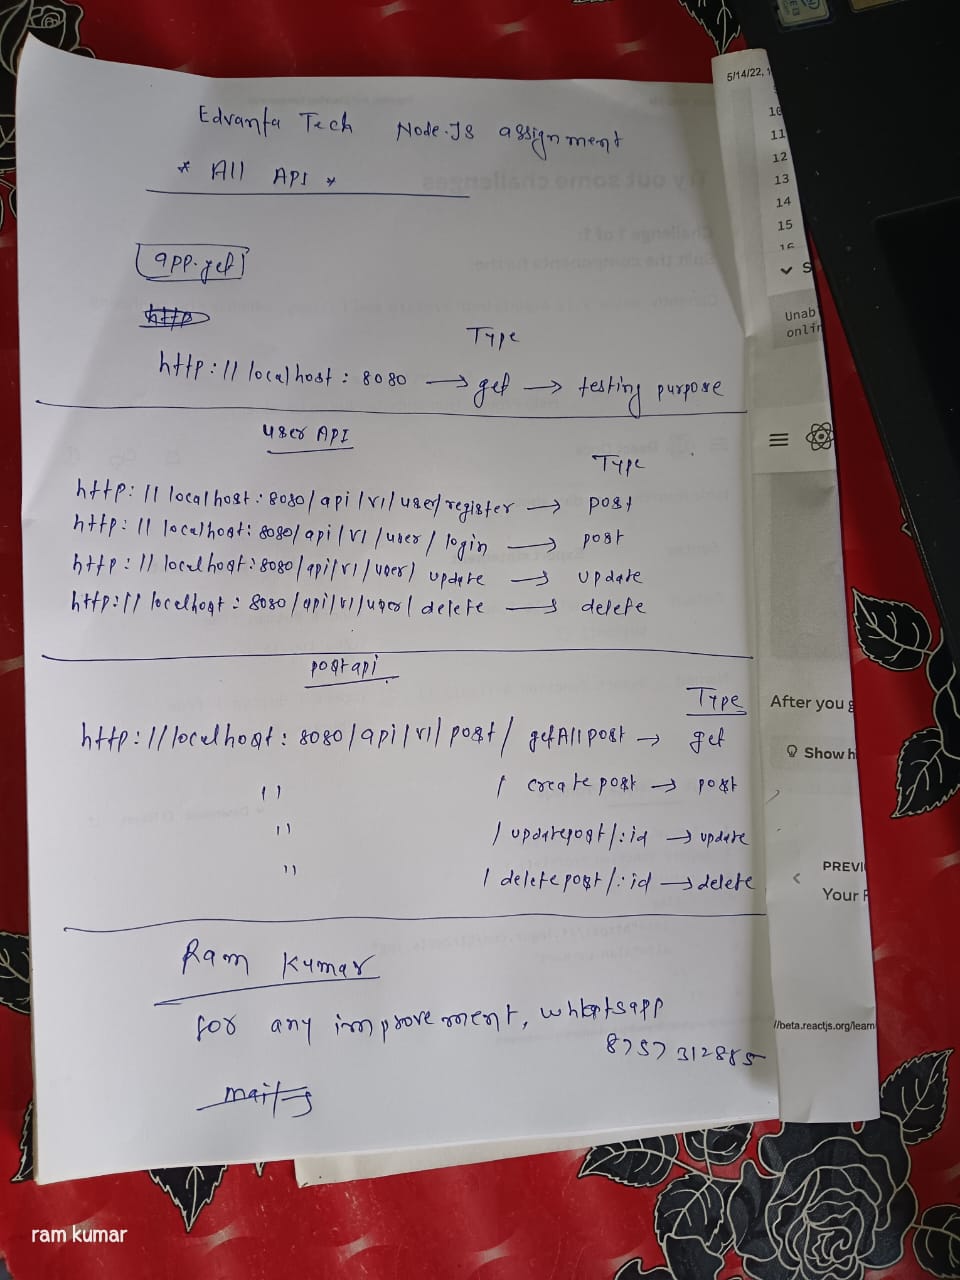 Edvanta Tech Node.JS assignment
* All API *
app.get
http
Type
http://localhost:8080 → get → testing purpose
user API
Type
http://localhost:8080/api/v1/user/register → post
http://localhost:8080/api/v1/user/login → post
http://localhost:8080/api/v1/user/update → update
http://localhost:8080/api/v1/user/delete → delete
post api
Type
http://localhost:8080/api/v1/post/getAllpost → get
" /createpost → post
" /updatepost/:id → update
" /deletepost/:id → delete
Ram Kumar
for any improvement, whatsapp
8757312885
ram kumar
5/14/22, 1
10
11
12
13
14
15
16
S
Unab
onlin
After you g
Show h
PREVI
Your
//beta.reactjs.org/learn